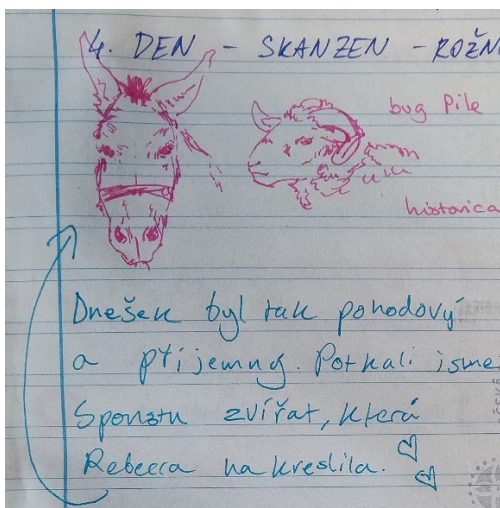 4. DEN - SKANZEN - ROŽN
bug Pile
historica
Dnešek byl tak pohodový
a příjemný. Potkali jsme
Sponstu zvířat, která
Rebecca nakreslila.